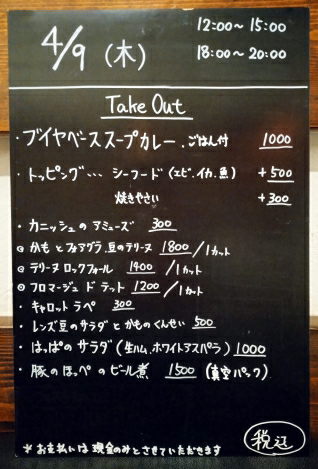 4/9 (木)
12:00～15:00
18:00～20:00
Take Out
・ブイヤベーススープカレー、ごはん付 1000
・トッピング… シーフード (エビ、イカ、魚) +500
焼きやさい +300
・カニッシュのアミューズ 300
◎かもとフォアグラ、豆のテリーヌ 1800/1カット
◎テリーヌロックフォール 1400/1カット
◎フロマージュドテット 1200/1カット
・キャロットラペ 300
・レンズ豆のサラダとかものくんせい 500
・はっぱのサラダ(生ハム、ホワイトアスパラ) 1000
・豚のほっぺのビール煮 1500 (真空パック)
*お支払いは現金のみとさせていただきます
税込